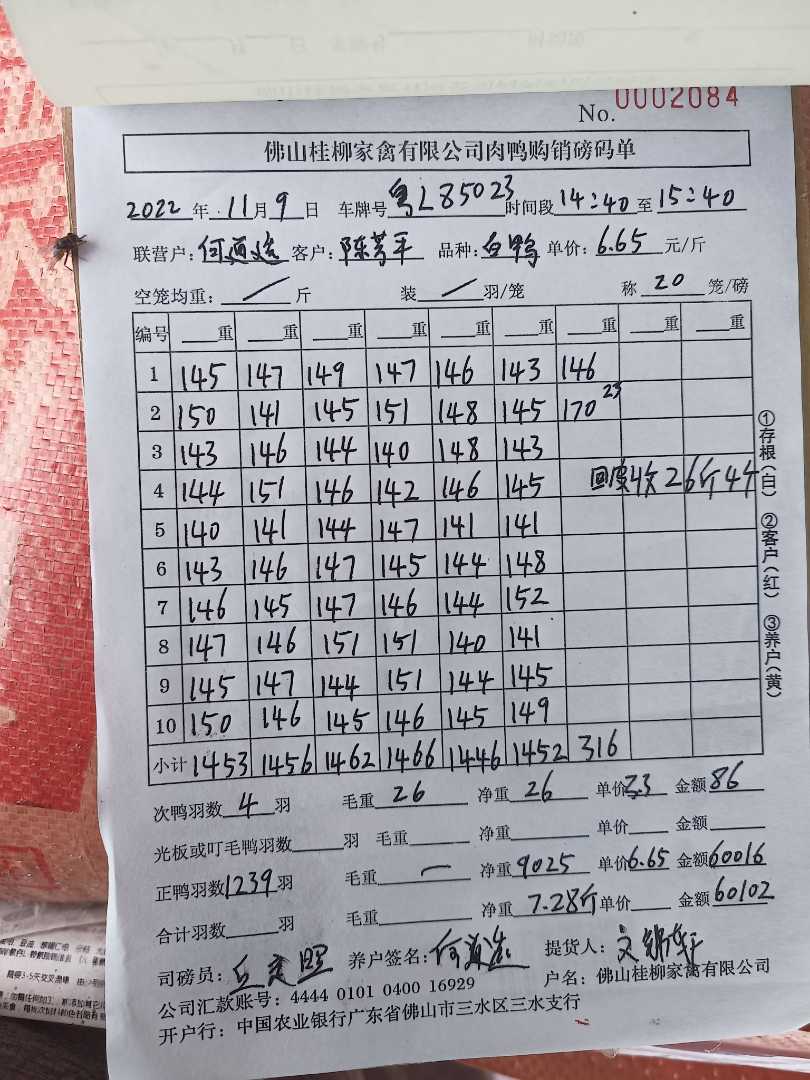 No. 0002084
佛山桂柳家禽有限公司肉鸭购销磅码单
2022年11月9日 车牌号粤L85023 时间段14:40至15:40
联营户:何道造 客户:陈芳平 品种:白鸭 单价:6.65元/斤
空笼均重:/斤 装/羽/笼 称20笼/磅
编号 重 重 重 重 重 重 重 重 重
1 145 147 149 147 146 143 146
2 150 141 145 151 148 145 170 23
3 143 146 144 140 148 143
4 144 151 146 142 146 145 回收26斤4个
5 140 141 144 147 141 141
6 143 146 147 145 144 148
7 146 145 147 146 144 152
8 147 146 151 151 140 141
9 145 147 144 151 144 145
10 150 146 145 146 145 149
小计 1453 1456 1462 1466 1446 1452 316
①存根(白) ②客户(红) ③养户(黄)
次鸭羽数4羽 毛重26 净重26 单价3.3 金额86
光板或叮毛鸭羽数 羽 毛重 净重 单价 金额
正鸭羽数1239羽 毛重— 净重9025 单价6.65 金额60016
合计羽数 羽 毛重 净重7.28斤 单价 金额60102
司磅员: 养户签名:何道造 提货人:
公司汇款账号:4444 0101 0400 16929 户名:佛山桂柳家禽有限公司
开户行:中国农业银行广东省佛山市三水区三水支行